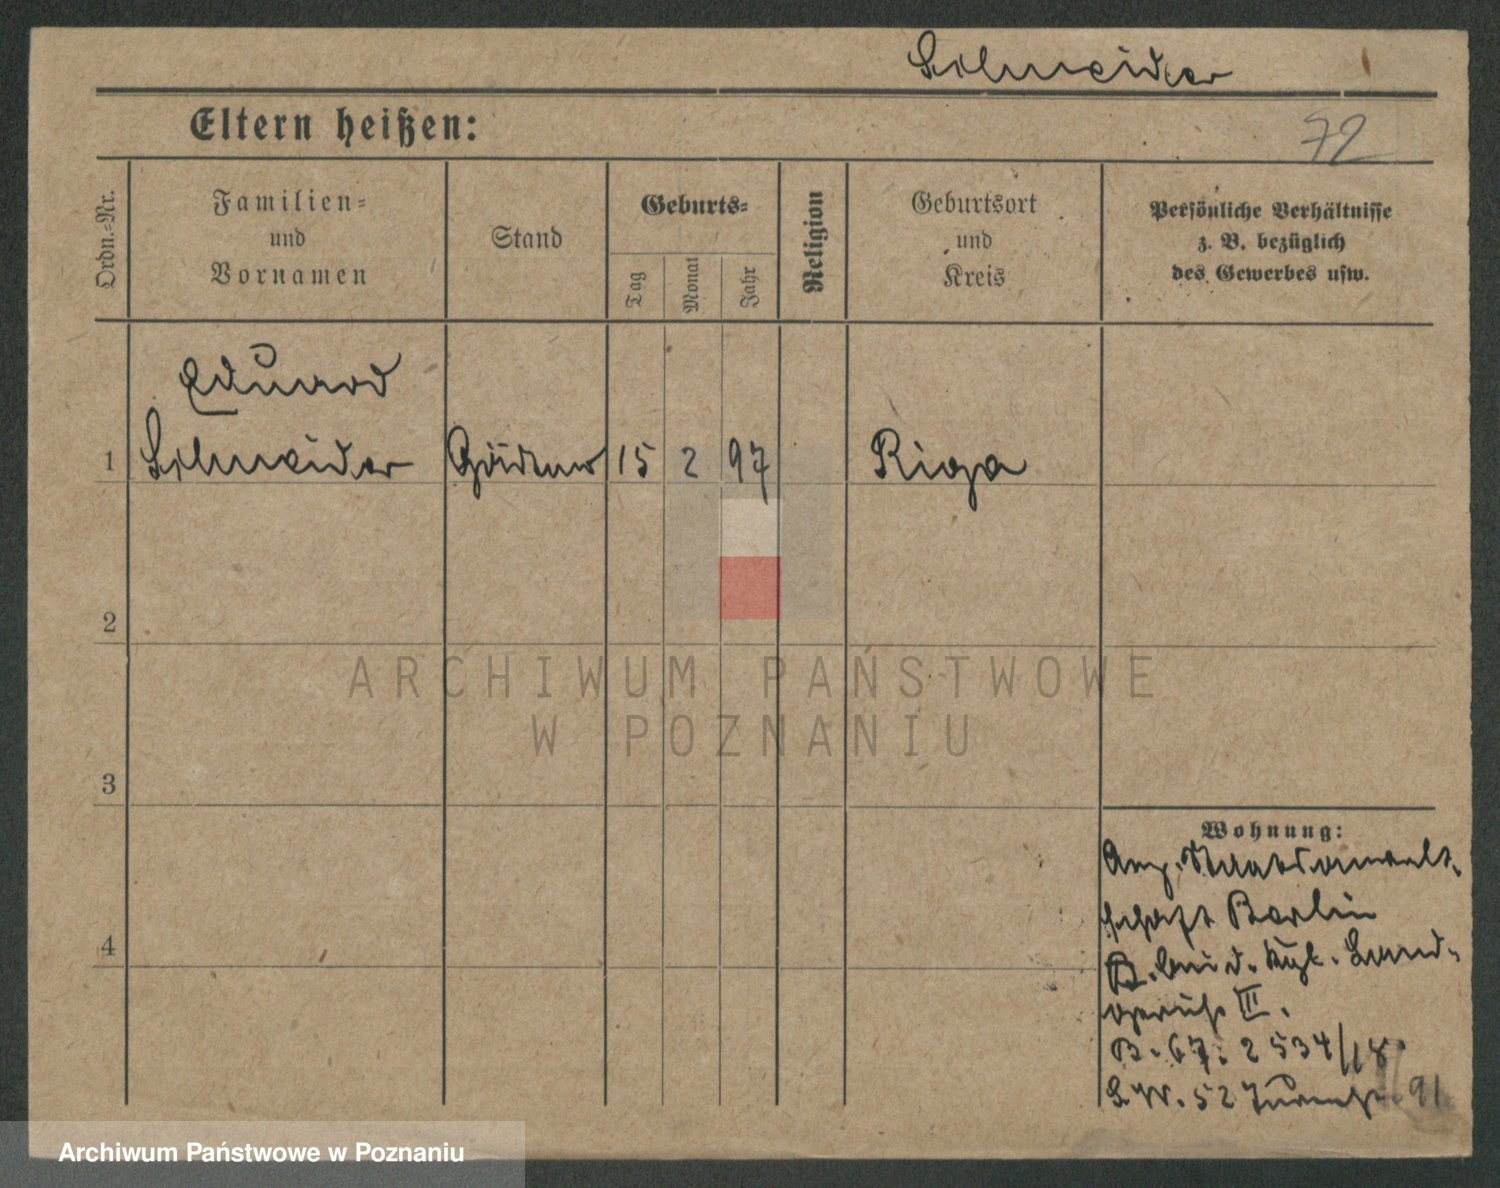 Schneider
Eltern heißen:
72
Ordn.-Nr.
Familien-
und
Vornamen
Stand
Geburts-
Tag
Monat
Jahr
Religion
Geburtsort
und
Kreis
Persönliche Verhältnisse
z. B. bezüglich
des Gewerbes usw.
Eduard
1 Schneider 15 2 97 Riga
2
3
4
Wohnung:
Staatsanwalt-
schaft Berlin
B. bei d. Kgl. Land-
gericht III.
B. 67. 2 534/18.
S.W. 52 Turmstr. 91
ARCHIWUM PAŃSTWOWE
W POZNANIU
Archiwum Państwowe w Poznaniu